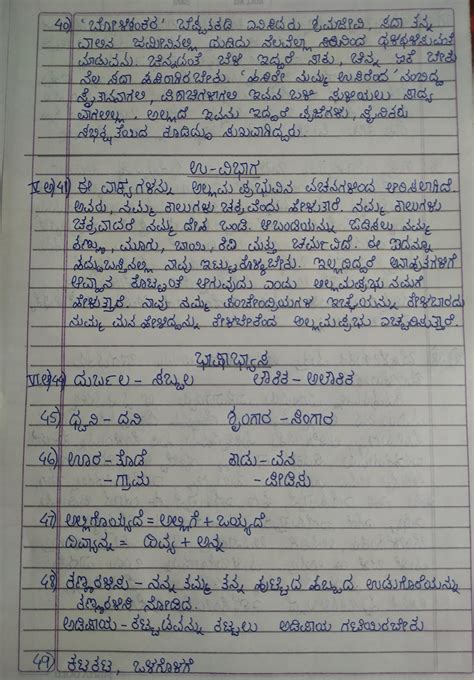 40) 'ಬೋಳೇಶಂಕರ' ಬೆಟ್ಟದಡಿ ಎನಿಸಿದರು ಶ್ರಮಜೀವಿ, ಸದಾ ತನ್ನ
ಪಾಲಿನ ಜಮೀನಿನಲ್ಲಿ ದುಡಿದು ನೆಲವೆಲ್ಲಾ ಹಸಿರಿನಿಂದ
ಮಾಡುವನು. ಚಿನ್ನದಂತೆ ಬೆಳೆ ಇದ್ದರೆ ಸಾಕು, ಚಿನ್ನ ಏಕೆ ಬೇಕು
ನೆಲ ಸದಾ ಹಸಿರಾಗಿರಬೇಕು. 'ಹಸಿರೇ ನಮ್ಮ ಉಸಿರೆಂದ' ನಂಬಿದ್ದ
ಸೈತಾನವಾಗಲಿ, ಪಿಶಾಚಿಗಳಾಗಲಿ ಇವನ ಬಳಿ ಸುಳಿಯಲು ಸಾಧ್ಯ
ವಾಗಲಿಲ್ಲ. ಅಲ್ಲದೆ ಇವನು ಇದ್ದರೆ ಪ್ರಜೆಗಳು, ಸೈನಿಕರು
ಕೂಡಿದ್ದು ಸುಖವಾಗಿದ್ದರು.
ಉ-ವಿಭಾಗ
V ಅ) 41) ಈ ವಾಕ್ಯಗಳನ್ನು ಅಲ್ಲಮಪ್ರಭುವಿನ ವಚನಗಳಿಂದ ಆರಿಸಲಾಗಿದೆ
ಅವರು, ನಮ್ಮ ಕಾಲುಗಳು ಚಕ್ರವೆಂದು ಹೇಳುತ್ತಾರೆ. ನಮ್ಮ ಕಾಲುಗಳು
ಚಕ್ರವಾದರೆ ನಮ್ಮ ದೇಹ ಬಂಡಿ. ಆ ಬಂಡಿಯನ್ನು ಓಡಿಸಲು ನಮ್ಮ
ಕಣ್ಣು, ಮೂಗು, ಬಾಯಿ, ಕಿವಿ ಮತ್ತು ಚರ್ಮವಿದೆ. ಈ ಐದನ್ನೂ
ಹದ್ದುಬಸ್ತಿನಲ್ಲಿ ನಾವು ಇಟ್ಟುಕೊಳ್ಳಬೇಕು. ಇಲ್ಲದಿದ್ದರೆ ಅನಾಹುತಗಳಿಗೆ
ಆಹ್ವಾನ ಕೊಟ್ಟಂತೆ ಆಗುವುದು ಎಂದು ಅಲ್ಲಮಪ್ರಭು ನಮಗೆ
ಹೇಳುತ್ತಾರೆ. ನಾವು ನಮ್ಮ ಪಂಚೇಂದ್ರಿಯಗಳು ಇಚ್ಛೆಯನ್ನು ಕೇಳಬಾರದು
ನಮ್ಮ ಮನ ಹೇಳಿದ್ದನ್ನು ಕೇಳಬೇಕೆಂದು ಅಲ್ಲಮಪ್ರಭು ಎಚ್ಚರಿಸುತ್ತಾರೆ.
ಭಾಷಾಭ್ಯಾಸ
VI ಅ) 44) ದುರ್ಬಲ - ಸಬಲ ಲೌಕಿಕ - ಅಲೌಕಿಕ
45) ಧ್ವನಿ - ದನಿ ಶೃಂಗಾರ - ಸಿಂಗಾರ
46) ಊರ - ತೊಡೆ ಕಾಡು - ವನ
- ಗ್ರಾಮ - ಪೀಡಿಸು
47) ಅಲ್ಲಿಗೊಯ್ಯದೆ = ಅಲ್ಲಿಗೆ + ಒಯ್ಯದೆ
ದಿವ್ಯಾನ್ನ = ದಿವ್ಯ + ಅನ್ನ
48) ಕಣ್ಣರಳಿಸು - ನನ್ನ ತಮ್ಮ ತನ್ನ ಹುಟ್ಟಿದ ಹಬ್ಬದ ಉಡುಗೊರೆಯನ್ನು
ಕಣ್ಣರಳಿಸಿ ನೋಡಿದ.
ಅಡಿಪಾಯ - ಕಟ್ಟಡವನ್ನು ಕಟ್ಟಲು ಅಡಿಪಾಯ ಗಟ್ಟಿಯಿರಬೇಕು
49) ಕಟಕಟ, ಒಳಗೊಳಗೆ